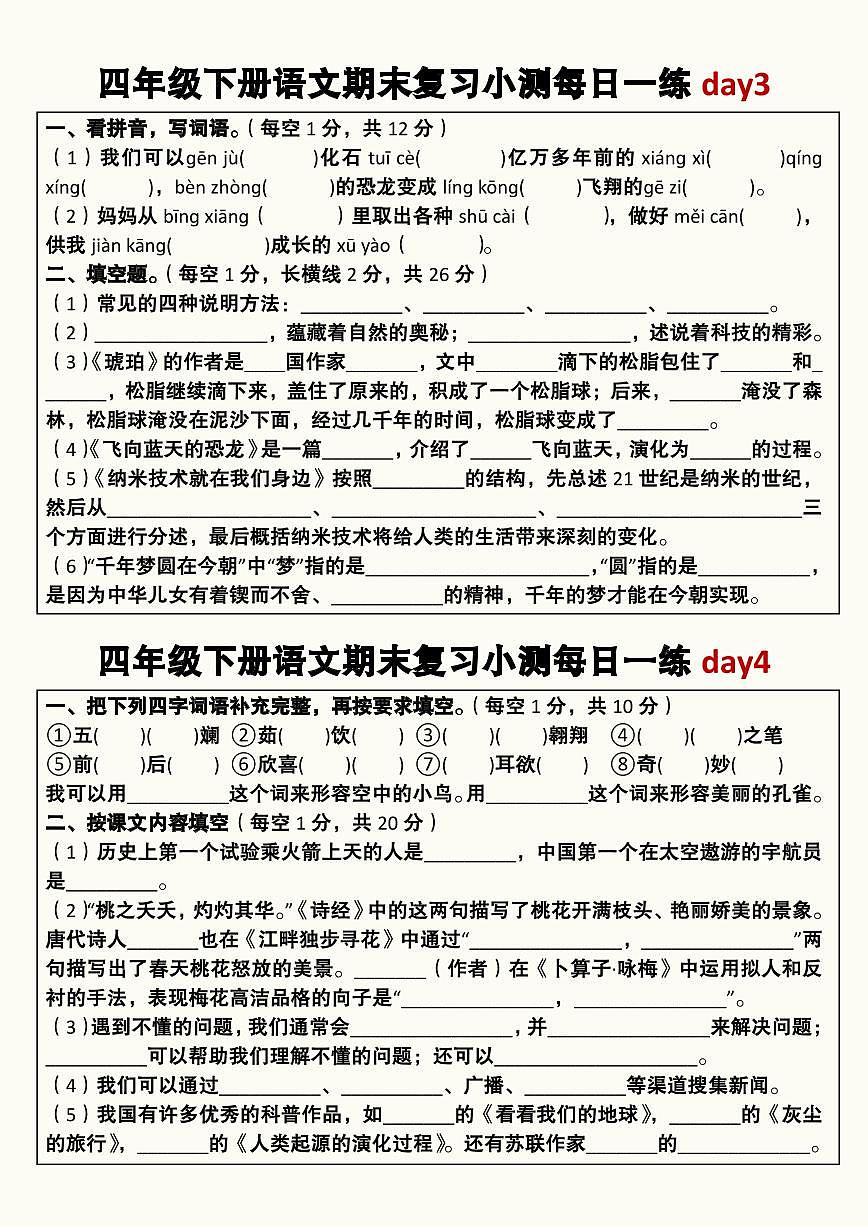 四年级下册语文期末复习小测每日一练 day3
一、看拼音，写词语。（每空 1 分，共 12 分）
（1）我们可以gēn jù(          )化石 tuī cè(          )亿万多年前的 xiáng xì(          )qíng
xíng(          )，bèn zhòng(          )的恐龙变成 líng kōng(          )飞翔的gē zi(          )。
（2）妈妈从 bīng xiāng（          ）里取出各种 shū cài（          ），做好 měi cān(          )，
供我 jiàn kāng(          )成长的 xū yào（          ）。
二、填空题。（每空 1 分，长横线 2 分，共 26 分）
（1）常见的四种说明方法：__________、__________、__________、__________。
（2）_________________，蕴藏着自然的奥秘；________________，述说着科技的精彩。
（3）《琥珀》的作者是____国作家_______，文中________滴下的松脂包住了_______和_
______，松脂继续滴下来，盖住了原来的，积成了一个松脂球；后来，_______淹没了森
林，松脂球淹没在泥沙下面，经过几千年的时间，松脂球变成了_________。
（4）《飞向蓝天的恐龙》是一篇_______，介绍了______飞向蓝天，演化为______的过程。
（5）《纳米技术就在我们身边》按照_________的结构，先总述 21 世纪是纳米的世纪，
然后从____________________、____________________、________________________三
个方面进行分述，最后概括纳米技术将给人类的生活带来深刻的变化。
（6）“千年梦圆在今朝”中“梦”指的是______________________，“圆”指的是___________，
是因为中华儿女有着锲而不舍、___________的精神，千年的梦才能在今朝实现。
四年级下册语文期末复习小测每日一练 day4
一、把下列四字词语补充完整，再按要求填空。（每空 1 分，共 10 分）
①五(      )(      )斓 ②茹(      )饮(      ) ③(      )(      )翱翔 ④(      )(      )之笔
⑤前(      )后(      ) ⑥欣喜(      )(      ) ⑦(      )耳欲(      ) ⑧奇(      )妙(      )
我可以用__________这个词来形容空中的小鸟。用__________这个词来形容美丽的孔雀。
二、按课文内容填空（每空 1 分，共 20 分）
（1）历史上第一个试验乘火箭上天的人是_________，中国第一个在太空遨游的宇航员
是_________。
（2）“桃之夭夭，灼灼其华。”《诗经》中的这两句描写了桃花开满枝头、艳丽娇美的景象。
唐代诗人_______也在《江畔独步寻花》中通过“_______________，_______________”两
句描写出了春天桃花怒放的美景。_______（作者）在《卜算子·咏梅》中运用拟人和反
衬的手法，表现梅花高洁品格的向子是“_______________，_______________”。
（3）遇到不懂的问题，我们通常会________________，并________________来解决问题；
__________可以帮助我们理解不懂的问题；还可以____________________。
（4）我们可以通过__________、__________、广播、__________等渠道搜集新闻。
（5）我国有许多优秀的科普作品，如_______的《看看我们的地球》，_______的《灰尘
的旅行》，_______的《人类起源的演化过程》。还有苏联作家_______的_____________。